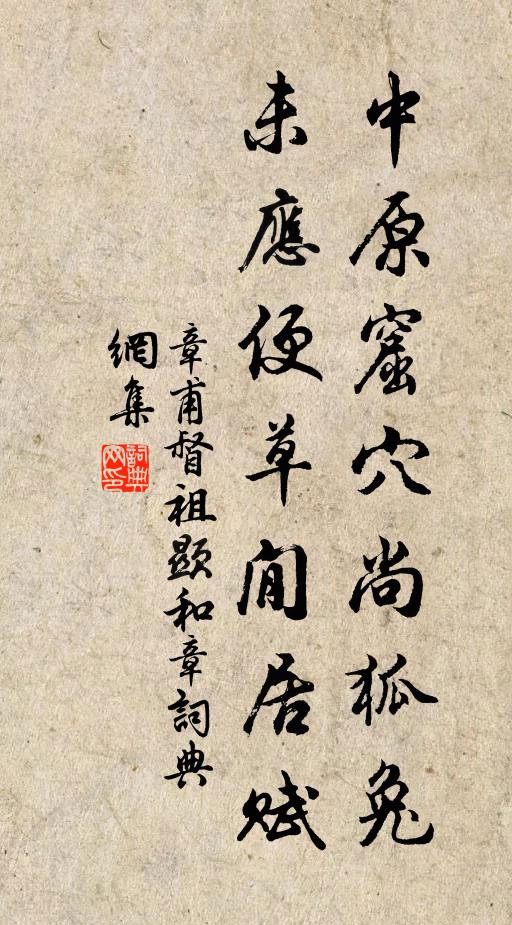 中原窟穴尚狐兔
未應便草閒居賦
章甫督祖顯和章詞典
網集
詞典
网印